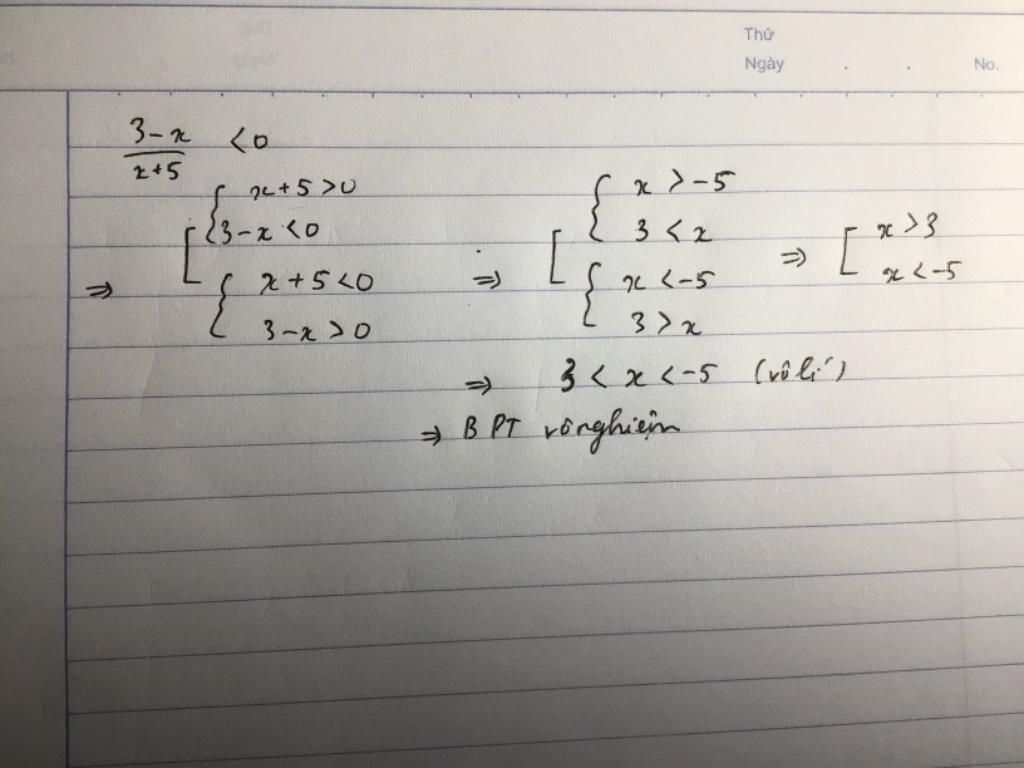 Thứ
Ngày . . No.
3-x/x+5 <0
⇒ [ { x+5>0
3-x<0
{ x+5<0
3-x>0
⇒ [ { x>-5
3<x
{ x<-5
3>x
⇒ [ x>3
x<-5
⇒ 3<x<-5 (vô lí)
⇒ BPT vô nghiệm